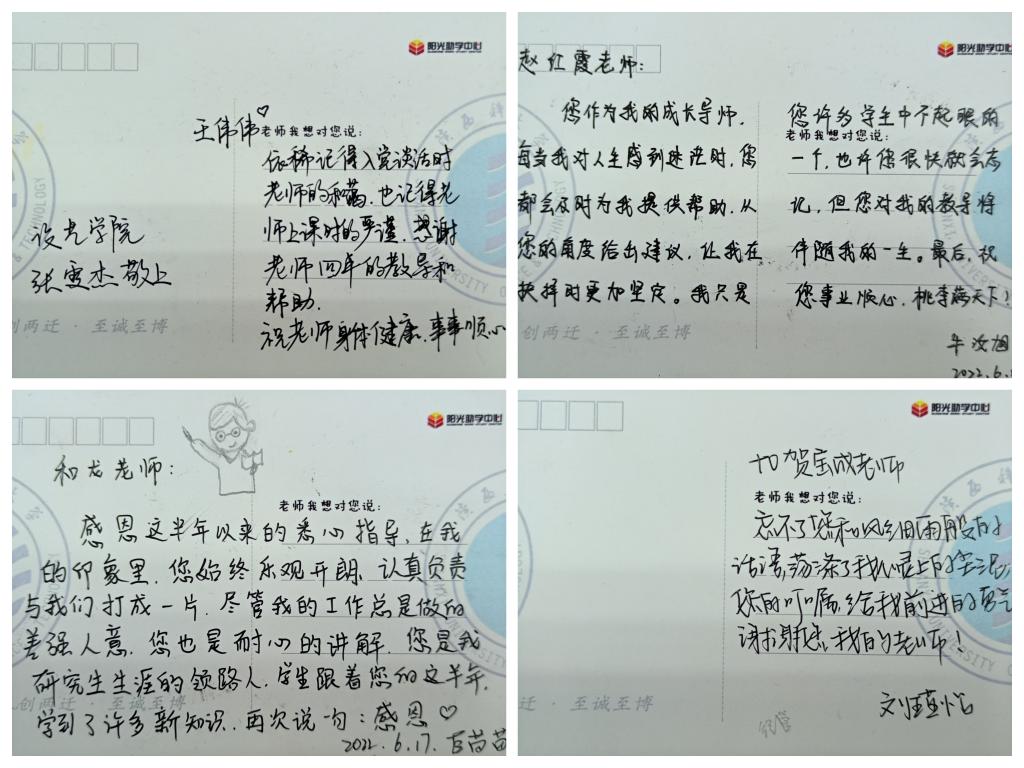 阳光助学中心
王伟伟♡
老师我想对您说:
依稀记得入党谈话时
老师的和蔼,也记得老
师上课时的严谨,感谢
老师四年的教导和
帮助.
祝老师身体健康,事事顺心
设艺学院
张雯杰敬上
创两迁·至诚至博
阳光助学中心
赵红霞老师:
您作为我的成长导师,
每当我对人生感到迷茫时,您
都会及时为我提供帮助,从
您的角度给出建议,让我在
抉择时更加坚定。我只是
老师我想对您说:
您许多学生中不起眼的
一个,也许您很快就会忘
记,但您对我的教导将
伴随我的一生。最后,祝
您事业顺心,桃李满天下!
牛汝旭
2022.6.1
创两迁·至诚至博
阳光助学中心
和龙老师:
老师我想对您说:
感恩这半年以来的悉心指导,在我
的印象里,您始终乐观开朗,认真负责
与我们打成一片,尽管我的工作总是做的
差强人意,您也是耐心的讲解,您是我
研究生生涯的领路人,学生跟着您的这半年,
学到了许多新知识,再次说一句:感恩♡
2022.6.17.
苗苗
创两迁·至诚至博
阳光助学中心
TO贺宝成老师
老师我想对您说:
忘不了您和风细雨般的
话语,荡涤了我心灵上的尘泥
您的叮嘱,给我前进的勇气
谢谢您,我的老师!
创两迁·至诚至博